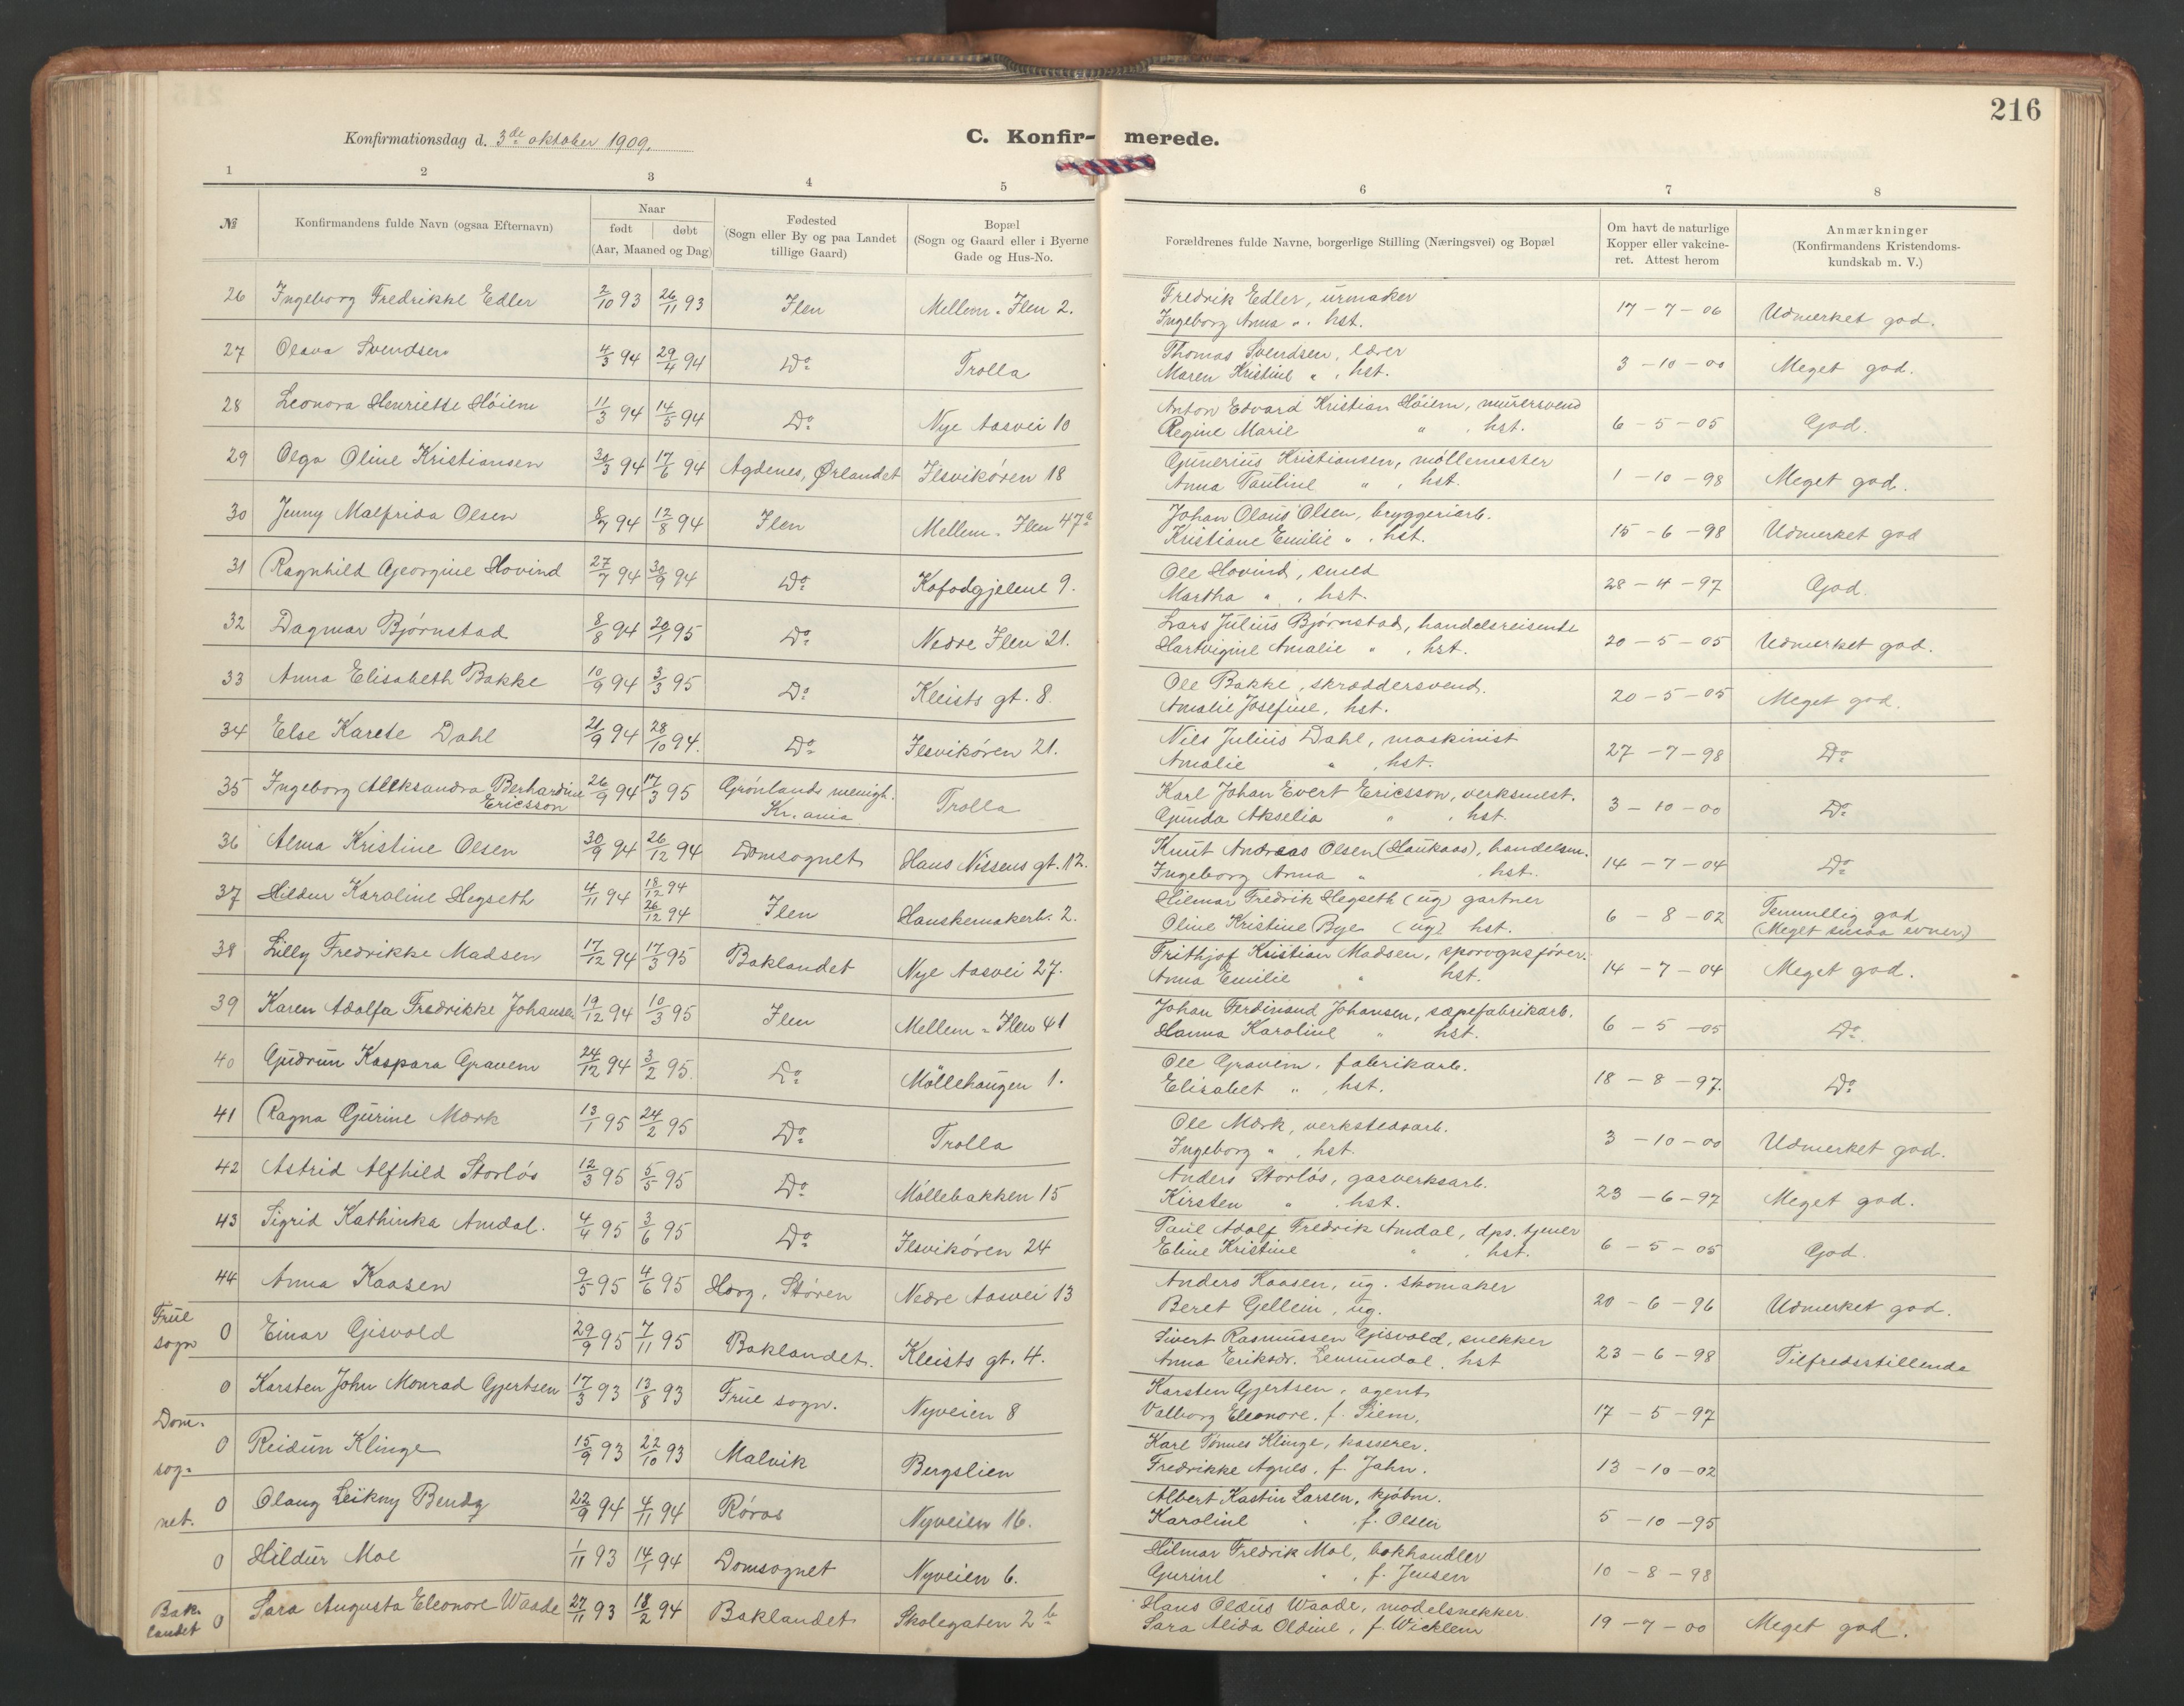 216
Konfirmationsdag d. 3de oktober 1909.
C. Konfirmerede.
1 2 3 4 5 6 7 8
№ Konfirmandens fulde Navn (ogsaa Efternavn) Naar født døbt (Aar, Maaned og Dag) Fødested (Sogn eller By og paa Landet tillige Gaard) Bopæl (Sogn og Gaard eller i Byerne Gade og Hus-No. Forældrenes fulde Navne, borgerlige Stilling (Næringsvei) og Bopæl Om havt de naturlige Kopper eller vakcineret. Attest herom Anmærkninger (Konfirmandens Kristendomskundskab m. V.)
26 Ingeborg Fredrikke Edler 2/10 93 26/11 93 Ilen Mellem-Ilen 2. Fredrik Edler, urmaker 17-7-06 Udmerket god.
Ingeborg Anna ", hst.
27 Olava Svendsen 4/3 94 29/4 94 Do Trolla Thomas Svendsen, lærer 3-10-00 Meget god.
Maren Kristine ", hst.
28 Leonora Henriette Höiem 11/3 94 14/5 94 Do Nye Aasvei 10 Anton Edvard Kristian Höiem, murersvend 6-5-05 God.
Regine Marie ", hst.
29 Olga Oline Kristiansen 30/3 94 17/6 94 Agdenes, Ørlandet Ilsvikören 18 Gunerius Kristiansen, möllemester 1-10-98 Meget god.
Anna Pauline ", hst.
30 Jenny Malfrida Olsen 8/7 94 12/8 94 Ilen Mellem-Ilen 47a Johan Olaus Olsen, bryggeriarb. 15-6-98 Udmerket god
Kristiane Emilie ", hst.
31 Ragnhild Georgine Hovind 27/7 94 30/9 94 Do Kofodgjelene 9. Ole Hovind, smed 28-4-97 God.
Martha ", hst.
32 Dagmar Bjørnstad 8/8 94 20/1 95 Do Nedre Ilen 21. Lars Julius Bjørnstad, handelsreisende 20-5-05 Udmerket god.
Hartvigine Amalie ", hst.
33 Anna Elisabeth Bakke 10/9 94 3/3 95 Do Kleists gt. 8. Ole Bakke, skræddersvend. 20-5-05 Meget god.
Amalie Josefine, hst.
34 Else Karete Dahl 21/9 94 28/10 94. Do Ilsvikören 21. Nils Julius Dahl, maskinist 27-7-98 Do
Amalie ", hst.
35 Ingeborg Alleksandra Berhardine Ericsson 26/9 94 17/3 95 Grönlands menigh. Kr.ania Trolla Karl Johan Evert Ericsson, verksmest. 3-10-00 Do
Gunda Akselia ", hst.
36 Alma Kristine Olsen 30/9 94 26/12 94 Domsognet Hans Nissens gt. 12. Knut Andreas Olsen (Haukaas), handelsm. 14-7-04 Do
Ingeborg Anna " hst.
37 Hildur Karoline Hegseth 4/11 94 18/12 94 26/12 94 Ilen Hanskemakerb. 2. Hilmar Fredrik Hegseth (ug) gartner 6-8-02 Temmelig god
Oline Kristine Bye (ug) hst. (Meget smaa evner.)
38 Lilly Fredrikke Madsen 17/12 94 17/3 95 Baklandet Nye Aasvei 27. Frithjof Kristian Madsen, sporvognsförer. 14-7-04 Meget god.
Anna Emilie " hst.
39 Karen Adolfa Fredrikke Johansen 19/12 94 10/3 95 Ilen Mellem-Ilen 41 Johan Ferdinand Johansen, sæpefabrikarb. 6-5-05 Do
Hanna Karoline " hst.
40 Gudrun Kaspara Gravem 24/12 94 3/2 95. Do Möllehaugen 1. Ole Gravem, fabrikarb. 18-8-97. Do
Elisabet ", hst.
41 Ragna Gurine Mork 13/1 95 24/2 95 Do Trolla Ole Mork, verkstedarb. 3-10-00 Udmerket god.
Ingeborg ", hst.
42 Astrid Alfhild Storlös 12/3 95 5/5 95 Do Möllebakken 15 Anders Storlös, gasverksarb. 23-6-97 Meget god.
Kirsten ", hst.
43 Sigrid Kathinka Amdal. 4/4 95 3/6 95 Do Ilsvikören 24 Paul Adolf Fredrik Amdal, dps. tjener 6-5-05 God.
Eline Kristine ", hst.
44 Anna Kaasen 9/5 95 4/6 95 Horg, Stören Nedre Aasvei 13 Anders Kaasen, ug. skomaker 20-6-96 Udmerket god.
Beret Gellein, ug.
Frue sogn 0 Einar Gisvold 29/9 95 7/11 95 Baklandet. Kleists gt. 4. Sivert Rasmussen Gisvold, snekker 23-6-98 Tilfredsstillende
Anna Eriksdr. Lemundal, hst
0 Karsten John Monrad Gjertsen 17/3 93 13/8 93 Frue sogn. Nyveien 8 Karsten Gjertsen, agent 17-5-97
Valborg Eleonore, f. Siem.
Domsognet. 0 Reidun Klinge 15/9 93 22/10 93 Malvik Bergslien Karl Tønnes Klinge, kasserer. 13-10-02
Fredrikke Agnes, f. Jahn.
0 Olaug Leikny 22/9 94 4/11 94 Røros Nyveien 16. Albert Kastin Larsen, kjöbm. 5-10-95
Karoline ", f. Olsen
0 Hildur Moe 1/11 93 14/1 94 Domsognet Nyveien 6. Hilmar Fredrik Moe, bokhandler 10-8-98
Gurine ", f. Jensen
Baklandet 0 Sara Augusta Eleonore Waade 27/11 93 18/2 94 Baklandet Skolegaten 2b Hans Oldus Waade, modelsnekker. 19-7-00 Meget god.
Sara Alida Oldine, f. Wicklem